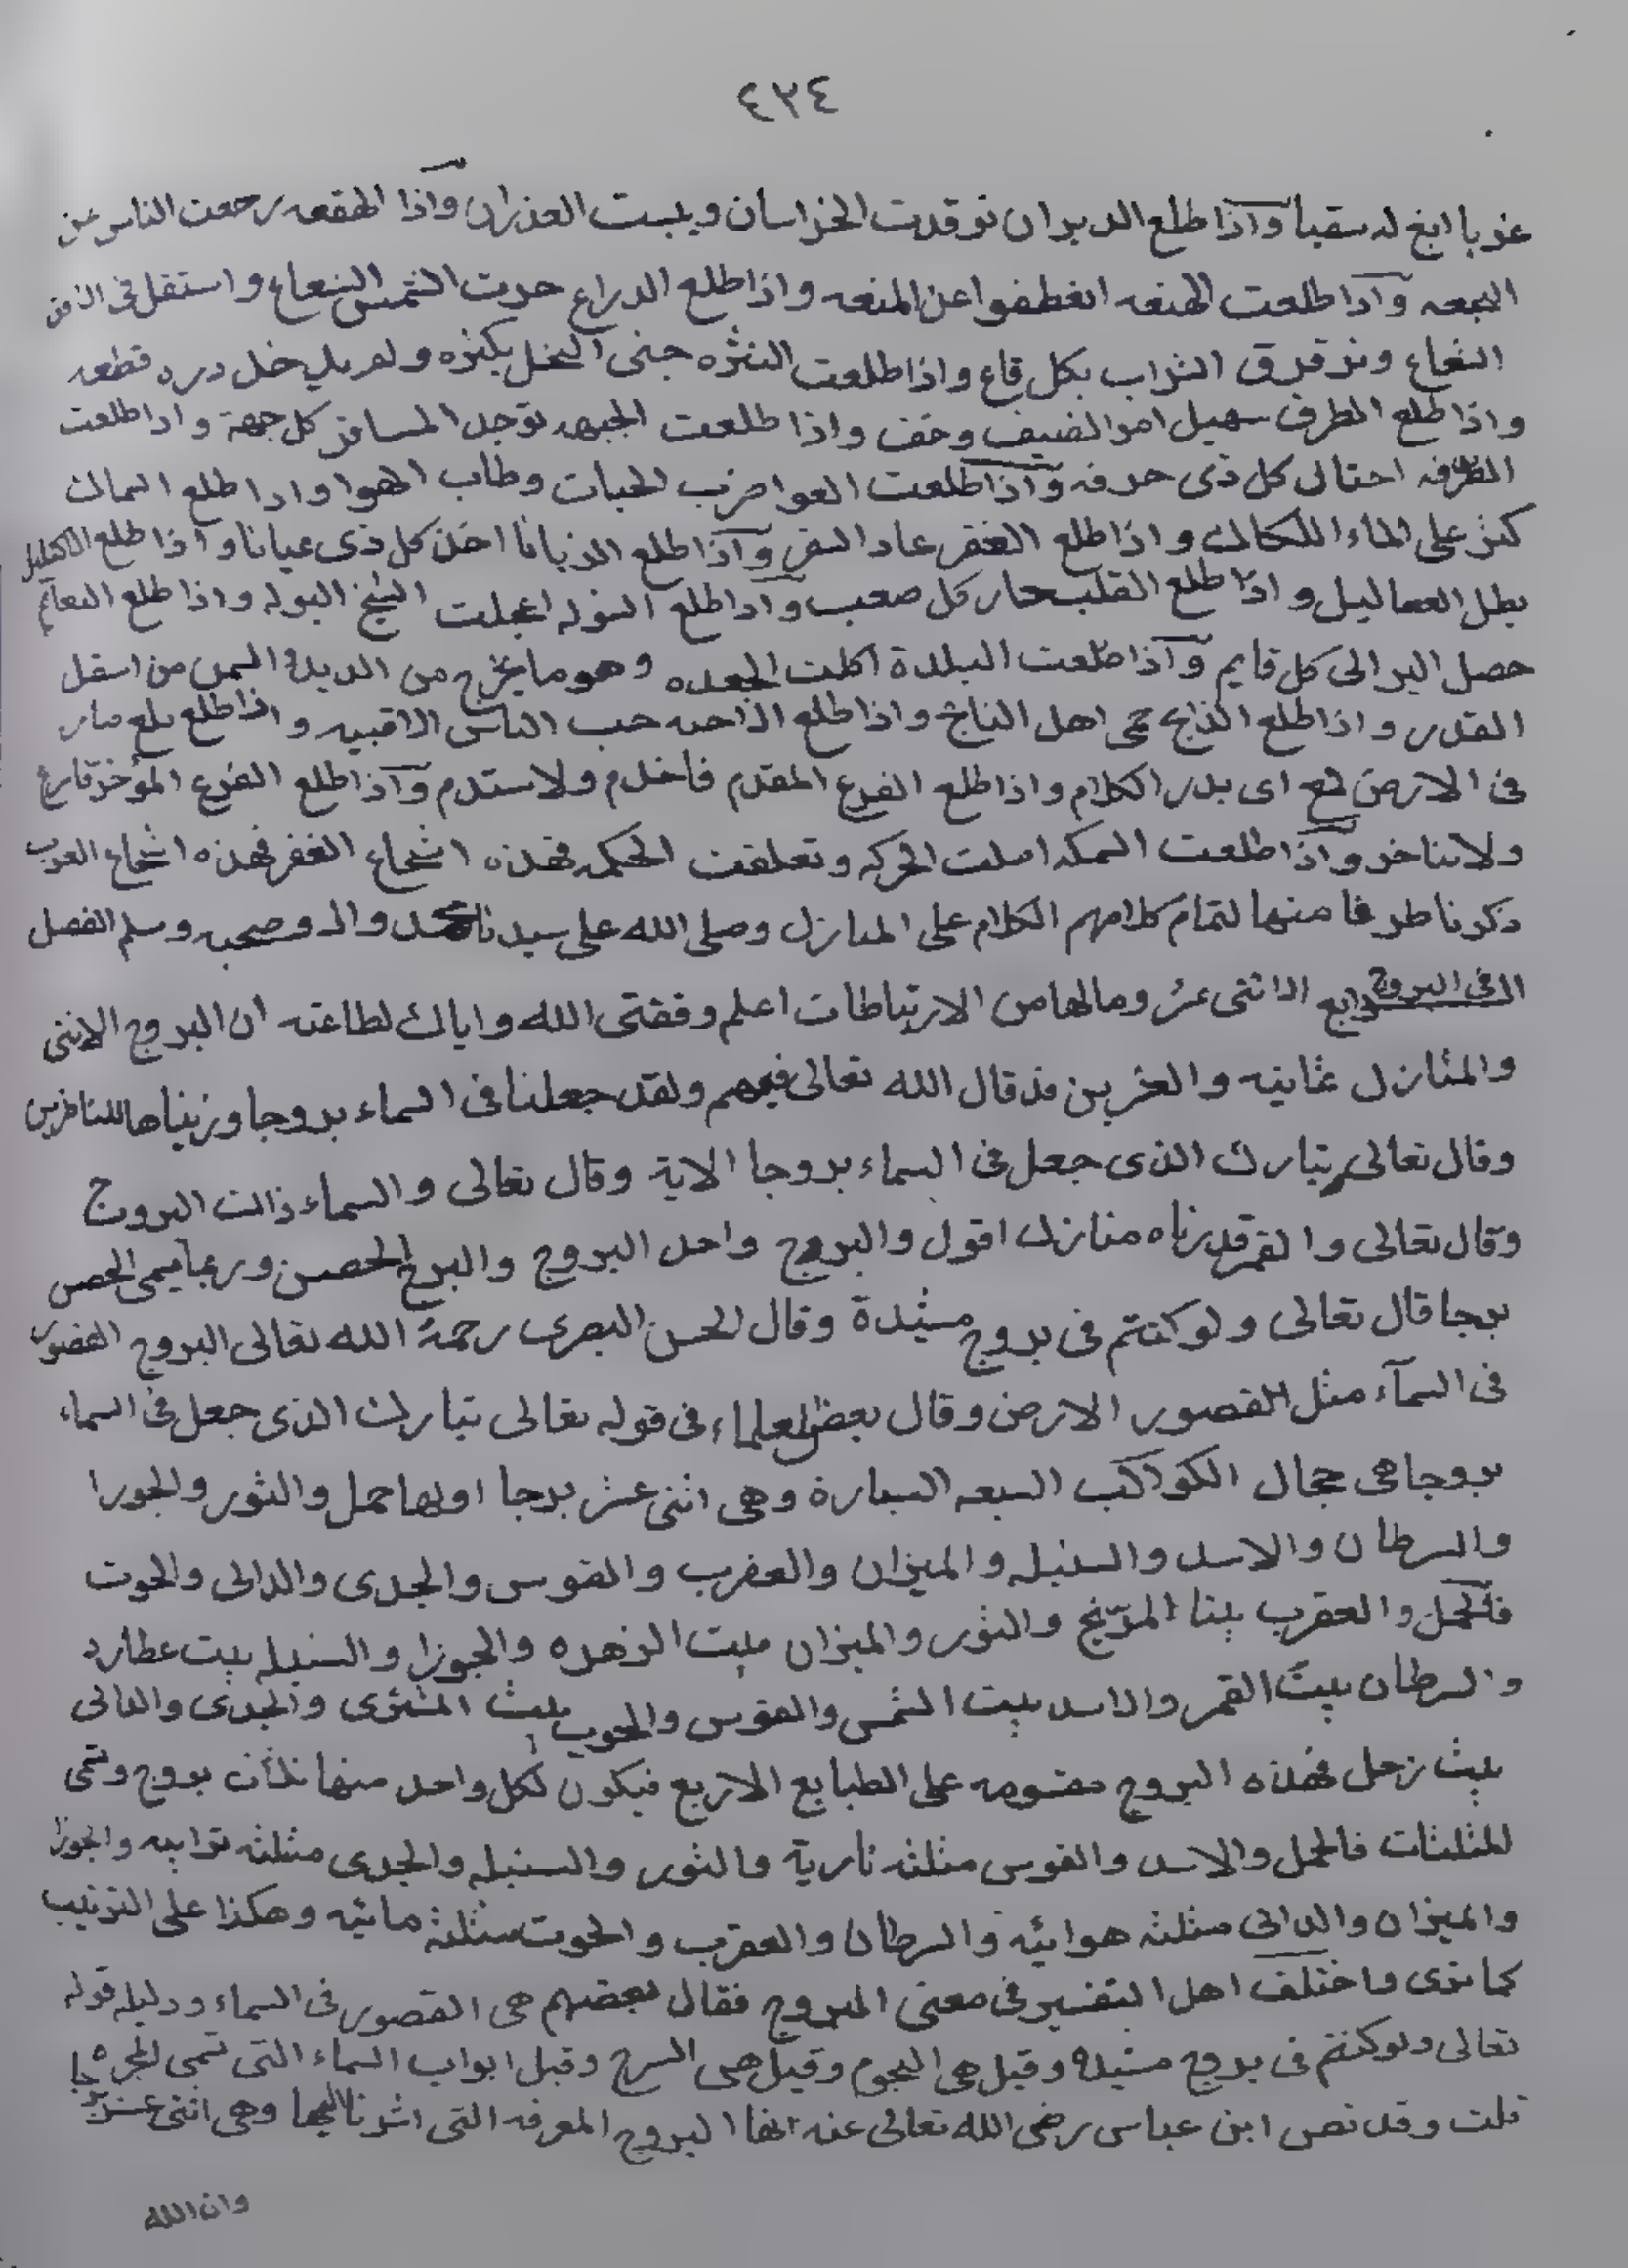 ٤٢٤
واذا طلع الدبران توقدت الخزاسان ويبست العذران واذا الهقعه رحعت الناس عن
النجعه واذا طلعت الهنعه انغطفوا عن المنعه واذا طلع الدراع حرت الشمس الشعاع واستقل فى الافق
الشعاع وترقرق التراب بكل قاع واذا طلعت النثره جنى النخل بكثره ولم يدخل دره قطعه
واذا طلع الطرف سهيل امر الضيف وخف واذا طلعت الجبهه توجد المسافر كل جهة واذا طلعت
الصرفه احتال كل ذى حرفه واذا طلعت العوا ضرب الخبات وطاب الهوا واذا طلع السمات
كثر على الماء اللكاك واذا طلع الغفر عاد السفر واذا طلع الزبانا اخذ كل ذى عيانا واذا طلع الاكليل
بطل العماليل واذا طلع القلب حار كل صعب واذا طلع الشوله اعجلت الشيخ البوله واذا طلع النعايم
حصل البر الى كل قايم واذا طلعت البلدة اكلت الجعده وهو ما يخرج من الزبد والسمن من اسفل
القدر واذا طلع الذابح حمى اهل النابح واذا طلع الاخبيه حب الناس الاقبيه واذا طلع بلع صار
فى الارض لمع اى بدر الكلام واذا طلع الفرع المقدم فاخدم ولا ستدم واذا طلع الفرع المؤخر قارع
ولا تتاخر واذا طلعت السمكه امكت الحركه وتعلقت الحكمه فهذه اشجاع الغفر فهذه اشجاع العرب
ذكرنا طرفا منها لتمام كلامهم الكلام على المنازل وصلى الله على سيدنا محمد واله وصحبه وسلم الفصل
الرابع فى البروج الاثنى عشر وما لها من الارتباطات اعلم وفقتى الله واياك لطاعته ان البروج الاثنى
والمنازل ثمانيه والعشرين قد قال الله تعالى فيهم ولقد جعلنا فى السماء بروجا وزيناها للناظرين
وقال تعالى تبارك الذى جعل فى السماء بروجا الاية وقال تعالى والسماء ذالت البروج
وقال تعالى والقمر قدرناه منازل اقول والبروج واحد البروج والبرج الحصن وربما يسمى الحصن
برجا قال تعالى ولو كنتم فى بروج مشيدة وقال الحسن البصرى رحمة الله تعالى البروج القصور
فى السمآء مثل القصور الارض وقال بعض العلماء فى قوله تعالى تبارك الذى جعل فى السماء
بروجا هى مجال الكواكب السبعه السيارة وهى اثنى عشر برجا اولها حمل والثور والجوزا
والسرطان والاسد والسنبله والميزان والعقرب والقوس والجدى والدالى والحوت
فالحمل والعقرب بيتا المريخ والثور والميزان بيت الزهره والجوزا والسنبله بيت عطارد
والسرطان بيت القمر والاسد بيت الشمس والقوس والحوت بيت المشترى والجدى والدالى
بيت زحل فهذه البروج مقسومه على الطبايع الاربع فيكون لكل واحد منها ثلاث بروج وتسمى
للمثلثات فالحمل والاسد والقوس مثلثه نارية والثور والسنبله والجدى مثلثه ترابيه والجوزا
والميزان والدالى مثلثه هوائيه والسرطان والعقرب والحوت مثلثة مائيه وهكذا على الترتيب
كما ترى واختلف اهل التفسير فى معنى البروج فقال بعضهم هى القصور فى السماء ودليله قوله
تعالى ولو كنتم فى بروج مشيده وقيل هى النجوم وقيل هى السرج وقيل ابواب السماء التى تسمى المجره
قلت وقد نص ابن عباس رضى الله تعالى عنه انها البروج المعرفه التى اشرنا اليها وهى اثنى عشر برجا
وان الله